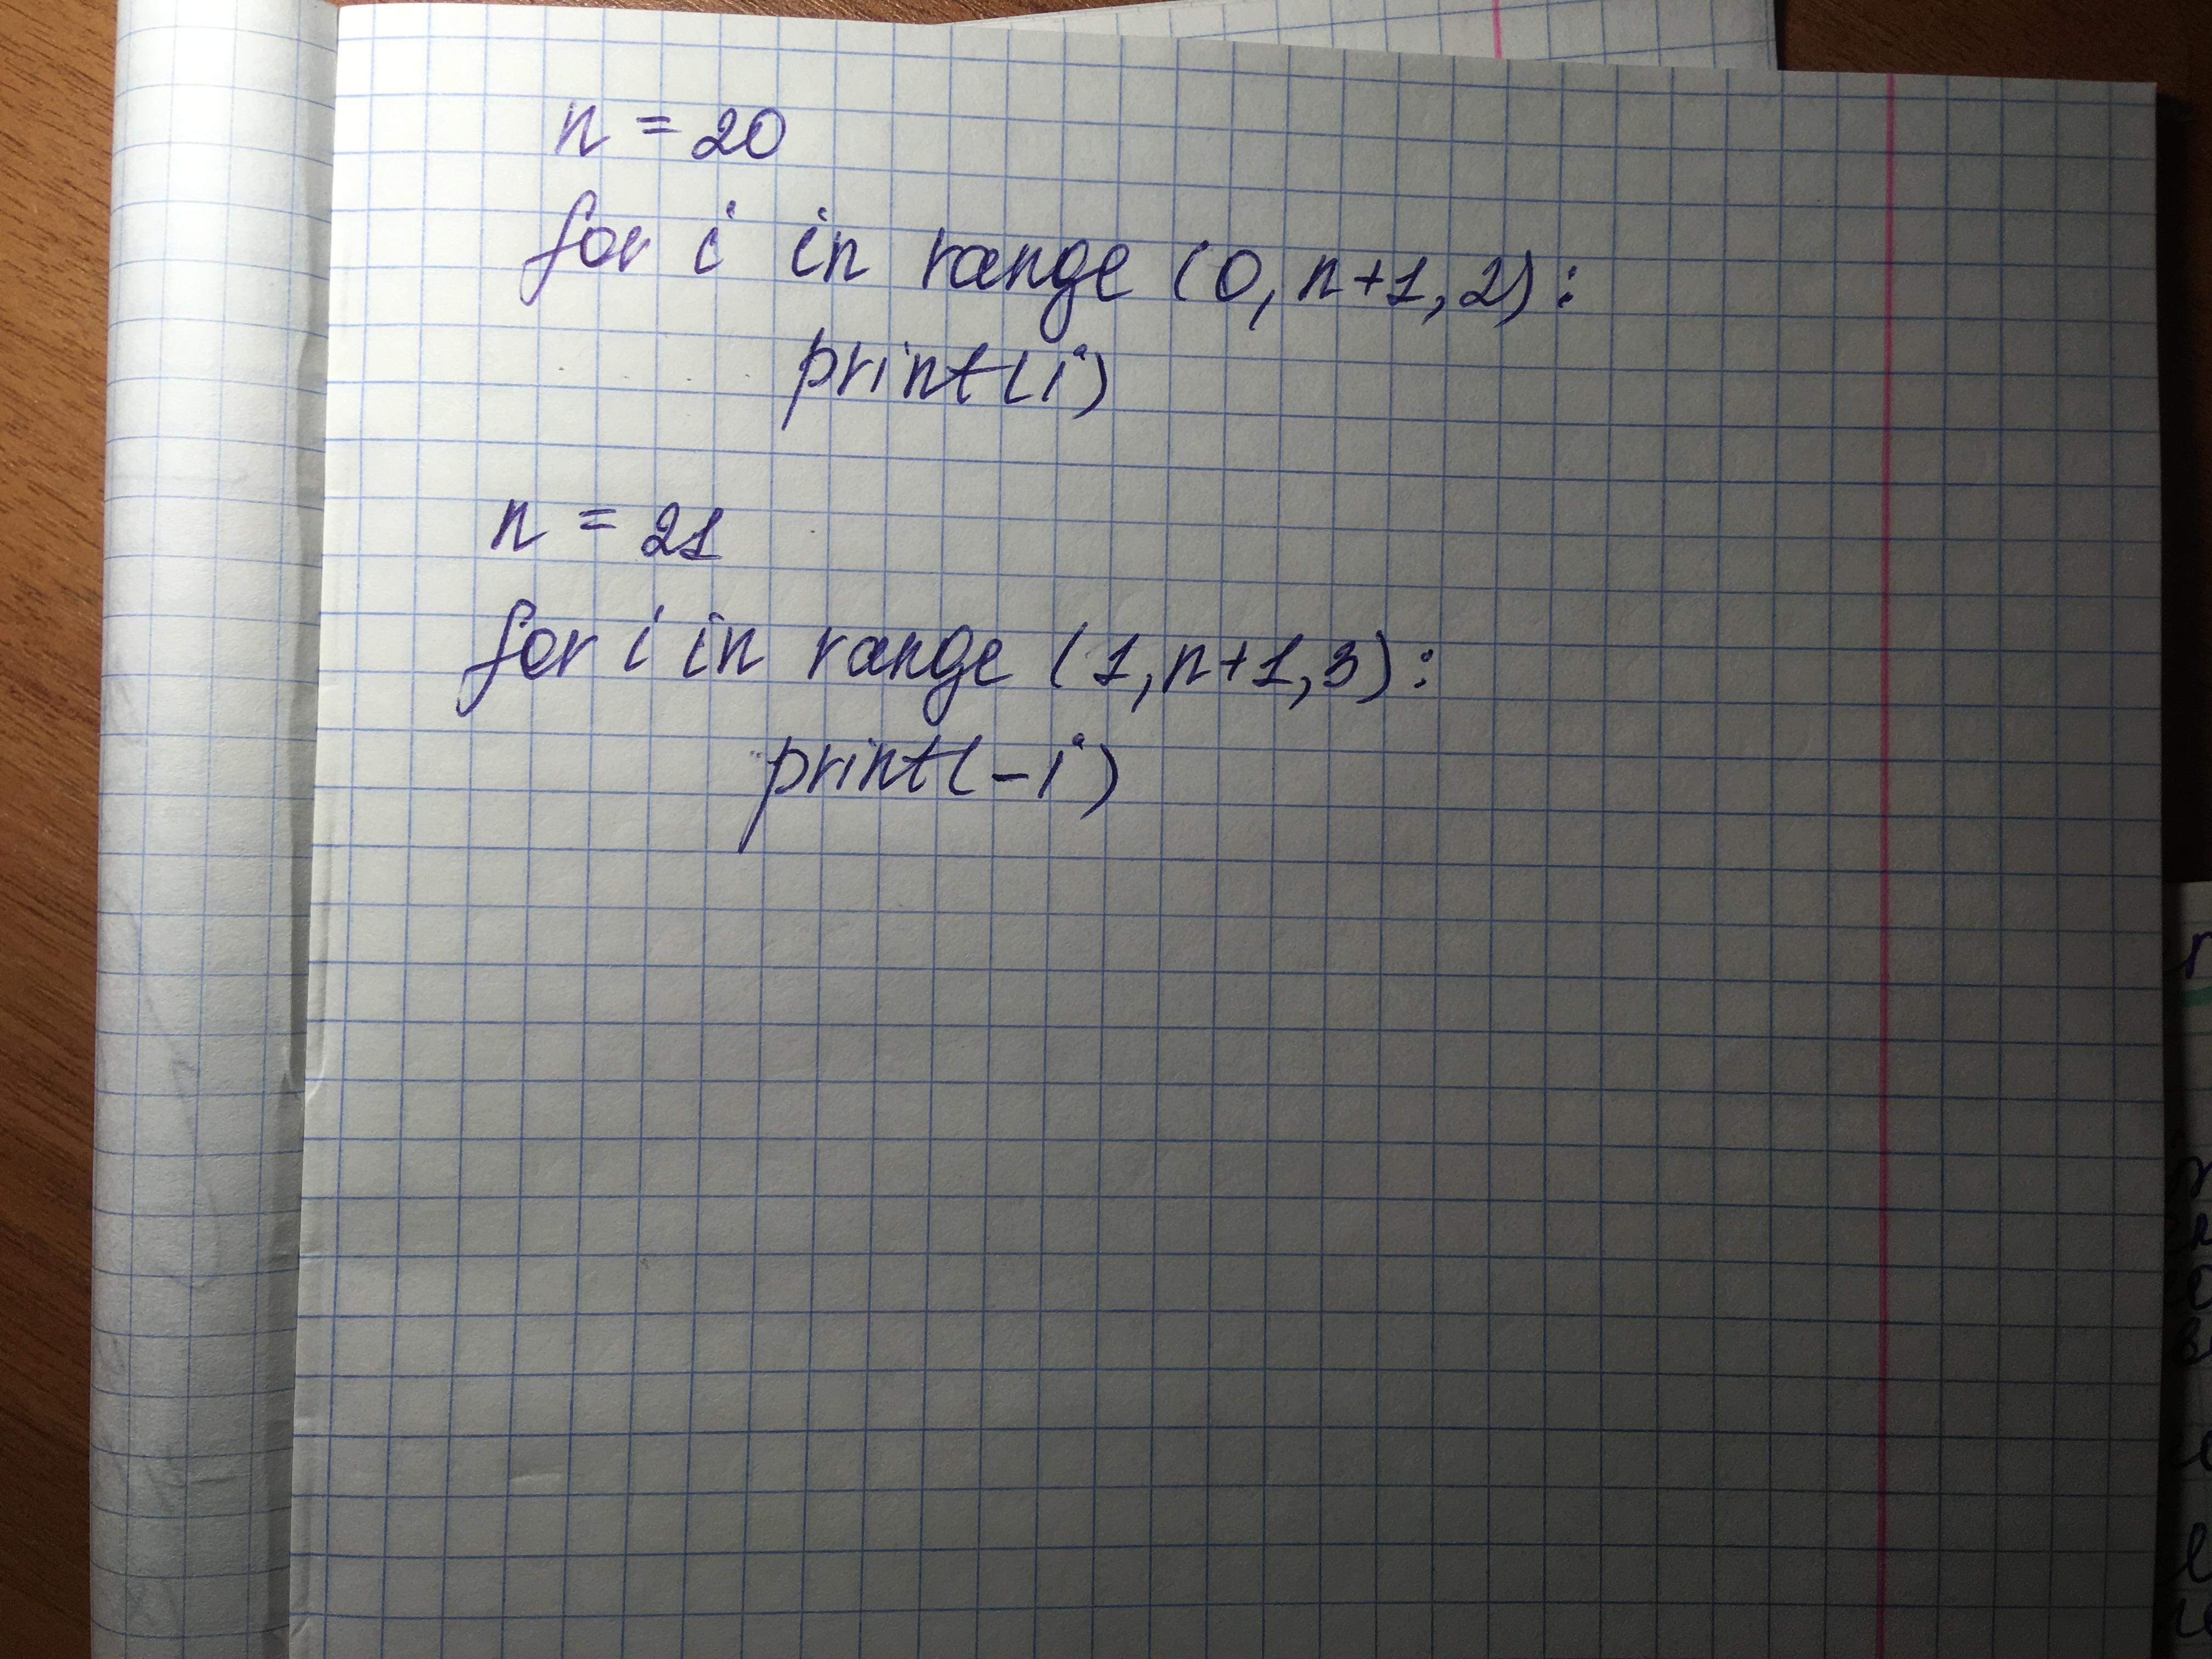 n = 20
for i in range (0, n+1, 2):
print(i)
n = 21
for i in range (1, n+1, 3):
print(-i)